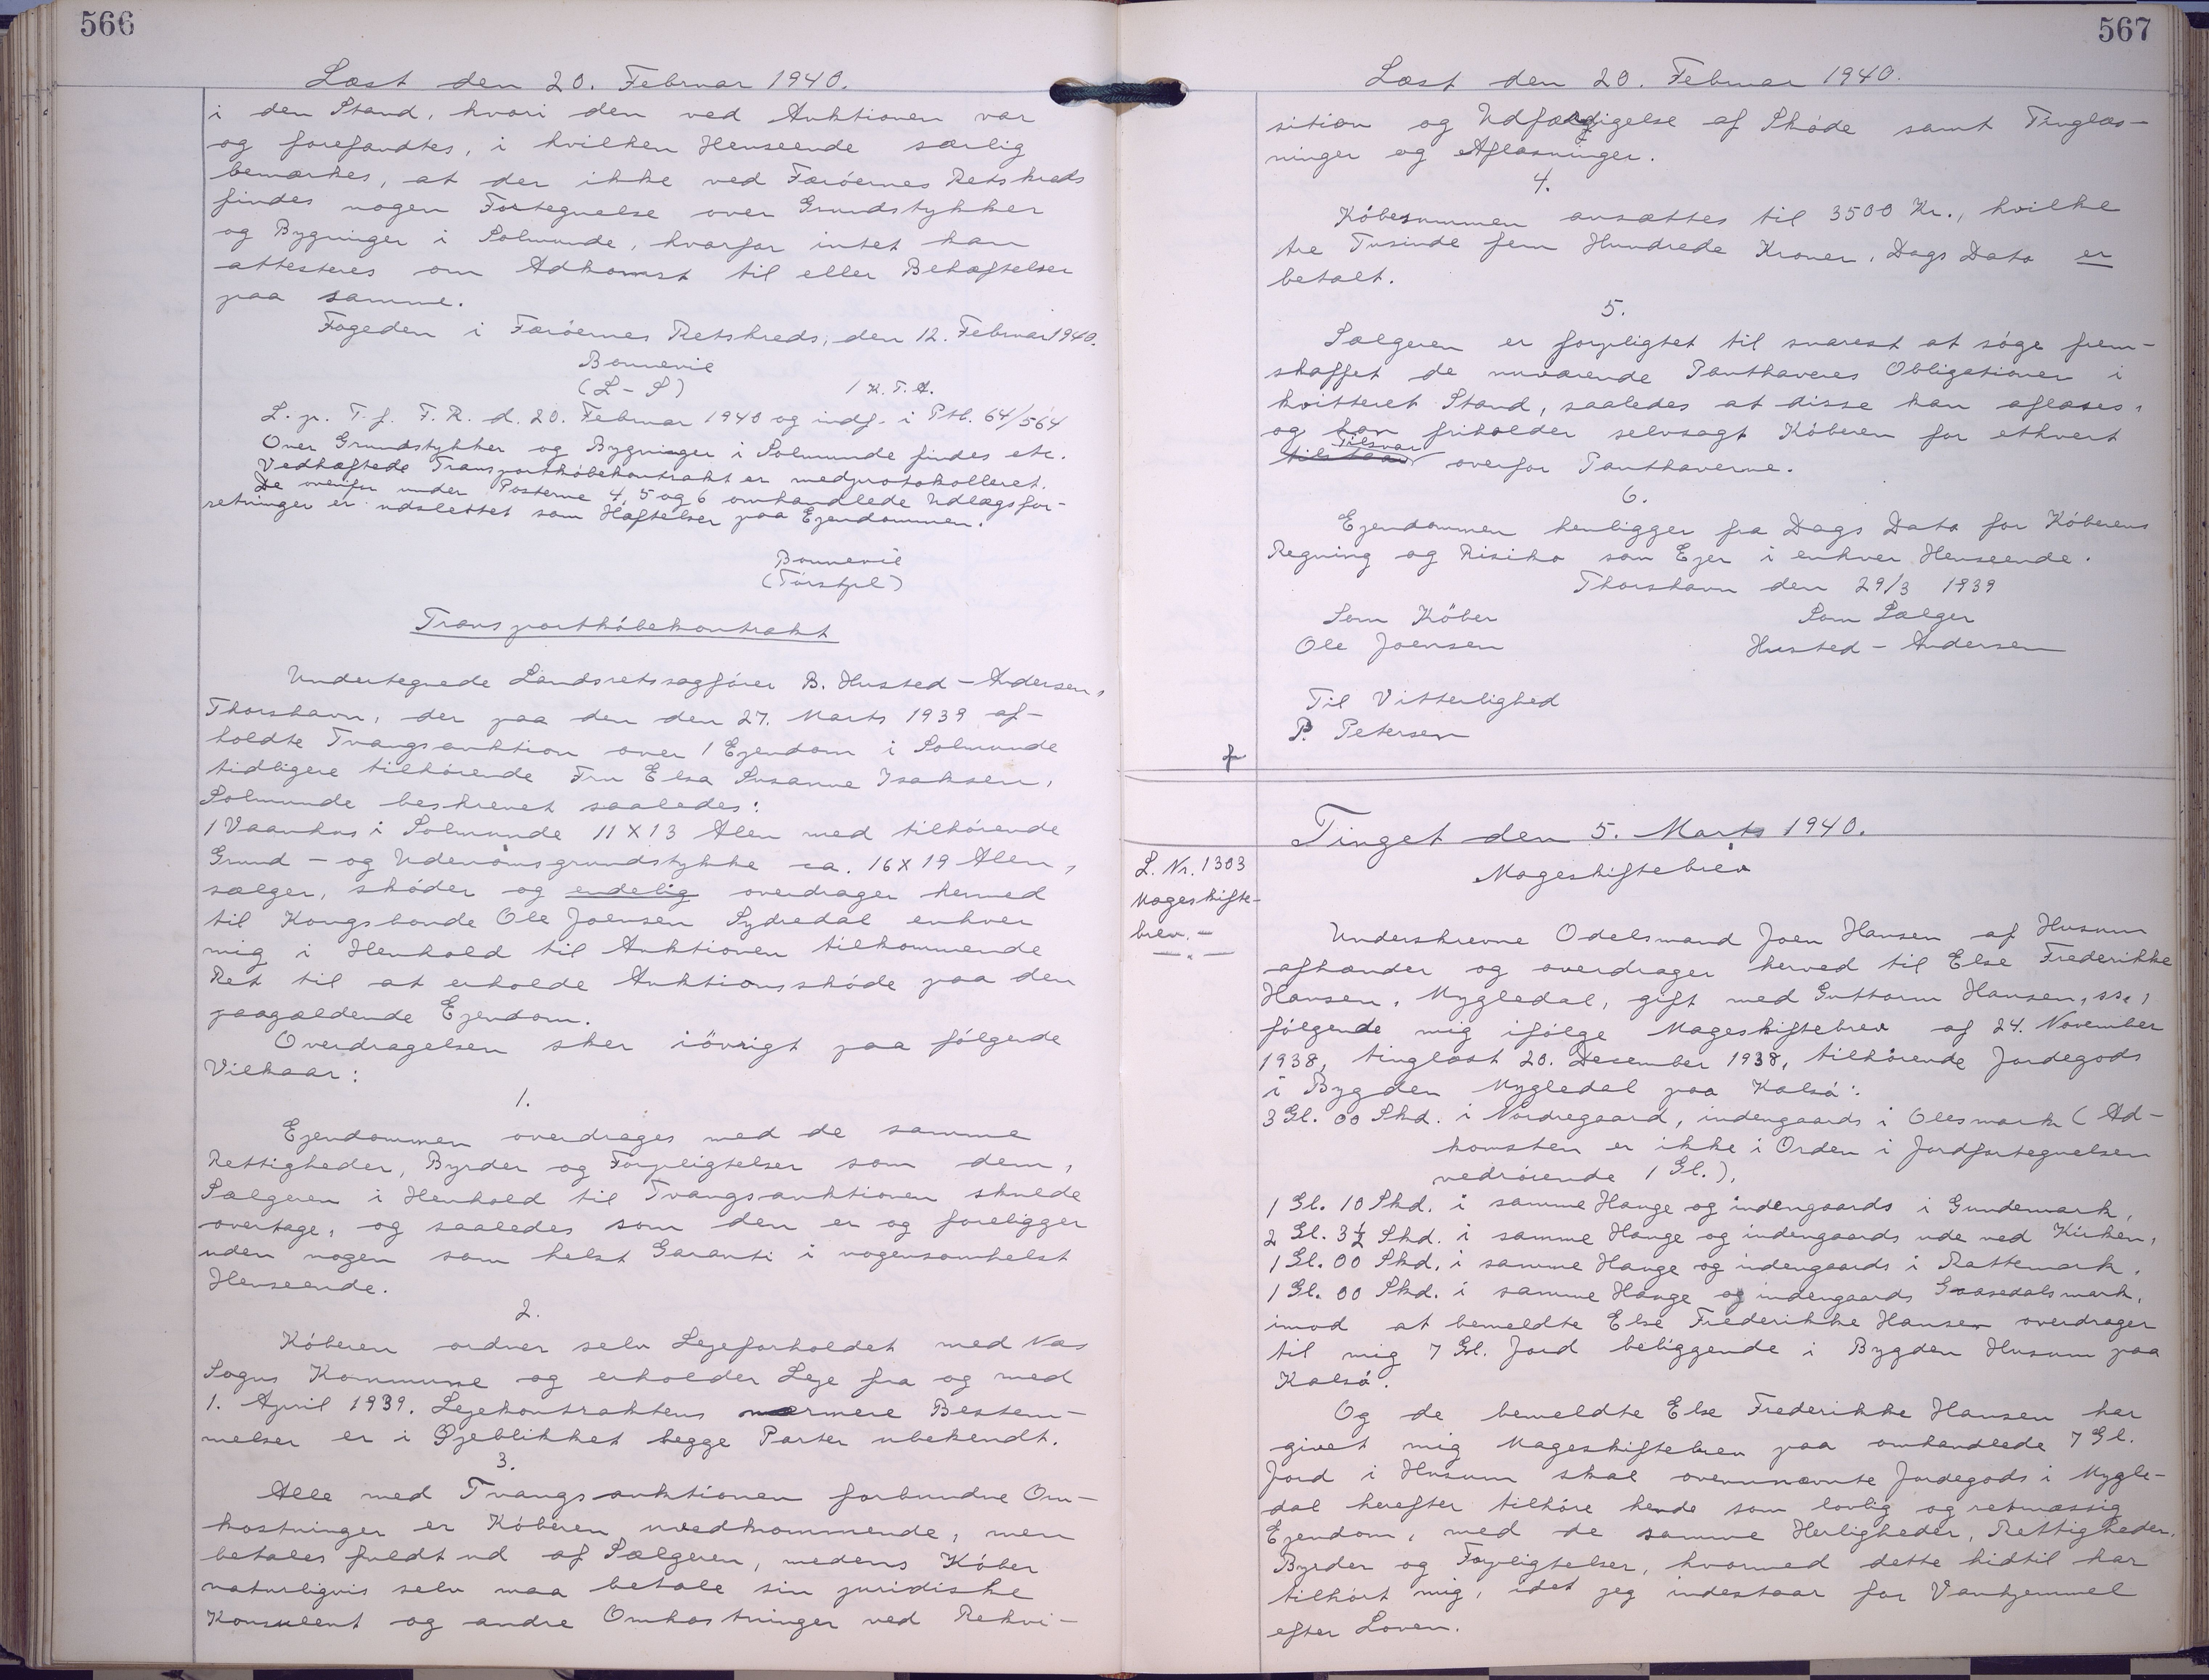 566
Læst den 20. Februar 1940.
i den Stand, hvori den ved Auktionen var
og forefandtes, i hvilken Henseende særlig
bemærkes, at der ikke ved Færóernes Retskreds
findes nogen Fortegnelse over Grundstykker
og Bygninger i Solmunde, hvorfor intet kan
attesteres om Adkomst til eller Behæftelser
paa samme.
Fogeden i Færóernes Retskreds, den 12. Februar 1940.
Bonnevie
(L-S) / K.T.A.
L. p. T. f. F. R. d. 20. Februar 1940 og indf. i Ptb. 64/564
Over Grundstykker og Bygninger i Solmunde findes etc.
Vedhæftede Transportkóbekontrakt er medprotokolleret.
De ovenfor under Posterne 4, 5 og 6 omhandlede Udlægsfor-
retninger er udslettet som Hæftelser paa Ejendommen.
Bonnevie
(Tórstpl)
Transportkóbekontrakt
Undertegnede Landsretssagfórer B. Husted-Andersen,
Thorshavn, der paa den den 27. Marts 1939 af-
holdte Tvangsauktion over 1 Ejendom i Solmunde
tidligere tilhórende Fru Elsa Susanne Isaksen,
Solmunde beskrevet saaledes:
1 Vaanhus i Solmunde 11 X 13 Alen med tilhórende
Grund- og Udenomsgrundstykke ca. 16 X 19 Alen,
sælger, skóder og endelig overdrager hermed
til Kongsbonde Ole Joensen Sydredal enhver
mig i Henhold til Auktionen tilkommende
Ret til at erholde Auktionsskóde paa den
paagældende Ejendom.
Overdragelsen sker ióvrigt paa fólgende
Vilkaar:
1.
Ejendommen overdrages med de samme
Rettigheder, Byrder og Forpligtelser som dem,
Sælgeren i Henhold til Tvangsauktionen skulde
overtage, og saaledes som den er og foreligger
uden nogen som helst Garanti i nogensomhelst
Henseende.
2.
Kóberen ordner selv Lejeforholdet med Næs
Sogns Kommune og erholder Leje fra og med
1. April 1939. Lejekontraktens nærmere Bestem-
melser er i Øjeblikket begge Parter ubekendt.
3.
Alle med Tvangsauktionen forbundne Om-
kostninger er Kóberen uvedkommende, men
betales fuldt ud af Sælgeren, medens Kóber
naturligvis selv maa betale sin juridiske
Konsulent og andre Omkostninger ved Rekvi-
567
Læst den 20. Februar 1940.
sition og Udfærdigelse af Skóde samt Tinglæs-
ninger og Aflæsninger.
4.
Kóbesummen ansættes til 3500 Kr., hvilke
tre Tusinde fem Hundrede Kroner, Dags Dato er
betalt.
5.
Sælgeren er forpligtet til snarest at sóge frem-
skaffet de nuværende Panthaveres Obligationer i
kvitteret Stand, saaledes at disse kan aflæses,
og han friholder selvsagt Kóberen for ethvert
Tilsvar
overfor Panthaverne.
6.
Ejendommen henligger fra Dags Dato for Kóberens
Regning og Risiko som Ejer i enhver Henseende.
Thorshavn den 29/3 1939
Som Köber Som Sælger
Ole Joensen Husted-Andersen
Til Vitterlighed
P. Petersen
Tinget den 5. Marts 1940.
L. Nr. 1303
Mageskifte-
brev.-
Mageskiftebrev
Underskrevne Odelsmand Joen Hansen af Husum
afhænder og overdrager herved til Else Frederikke
Hansen, Mygledal, gift med Guttorm Hansen, ss.,
fólgende mig ifólge Mageskiftebrev af 24. November
1938, tinglæst 20. Desember 1938, tilhórende Jordegods
i Bygden Mygledal paa Kalsó:
3 Gl. 00 Skd. i Nordregaard, indengaards i Olesmark (Ad-
komsten er ikke i Orden i Jordfortegnelsen
vedróiende 1 Gl.),
1 Gl. 10 Skd. i samme Hauge og indengaards i Gundemark,
2 Gl. 3½ Skd. i samme Hauge og indengaards ude ved Kirken,
1 Gl. 00 Skd. i samme Hauge og indengaards i Rattemark,
1 Gl. 00 Skd. i samme Hauge og indengaards Gaasedalsmark,
imod at bemeldte Else Frederikke Hansen overdrager
til mig 7 Gl. Jord beliggende i Bygden Husum paa
Kalsó.
Og de bemeldte Else Frederikke Hansen har
givet mig Mageskiftebrev paa omhandlede 7 Gl.
Jord i Husum skal ovennævnte Jordegods i Mygle-
dal herefter tilhóre hende som lovlig og retmæssig
Ejendom, med de samme Herligheder, Rettigheder,
Byrder og Forpligtelser, hvormed dette hidtil har
tilhórt mig, idet jeg indestaar for Vanhjemmel
efter Loven.